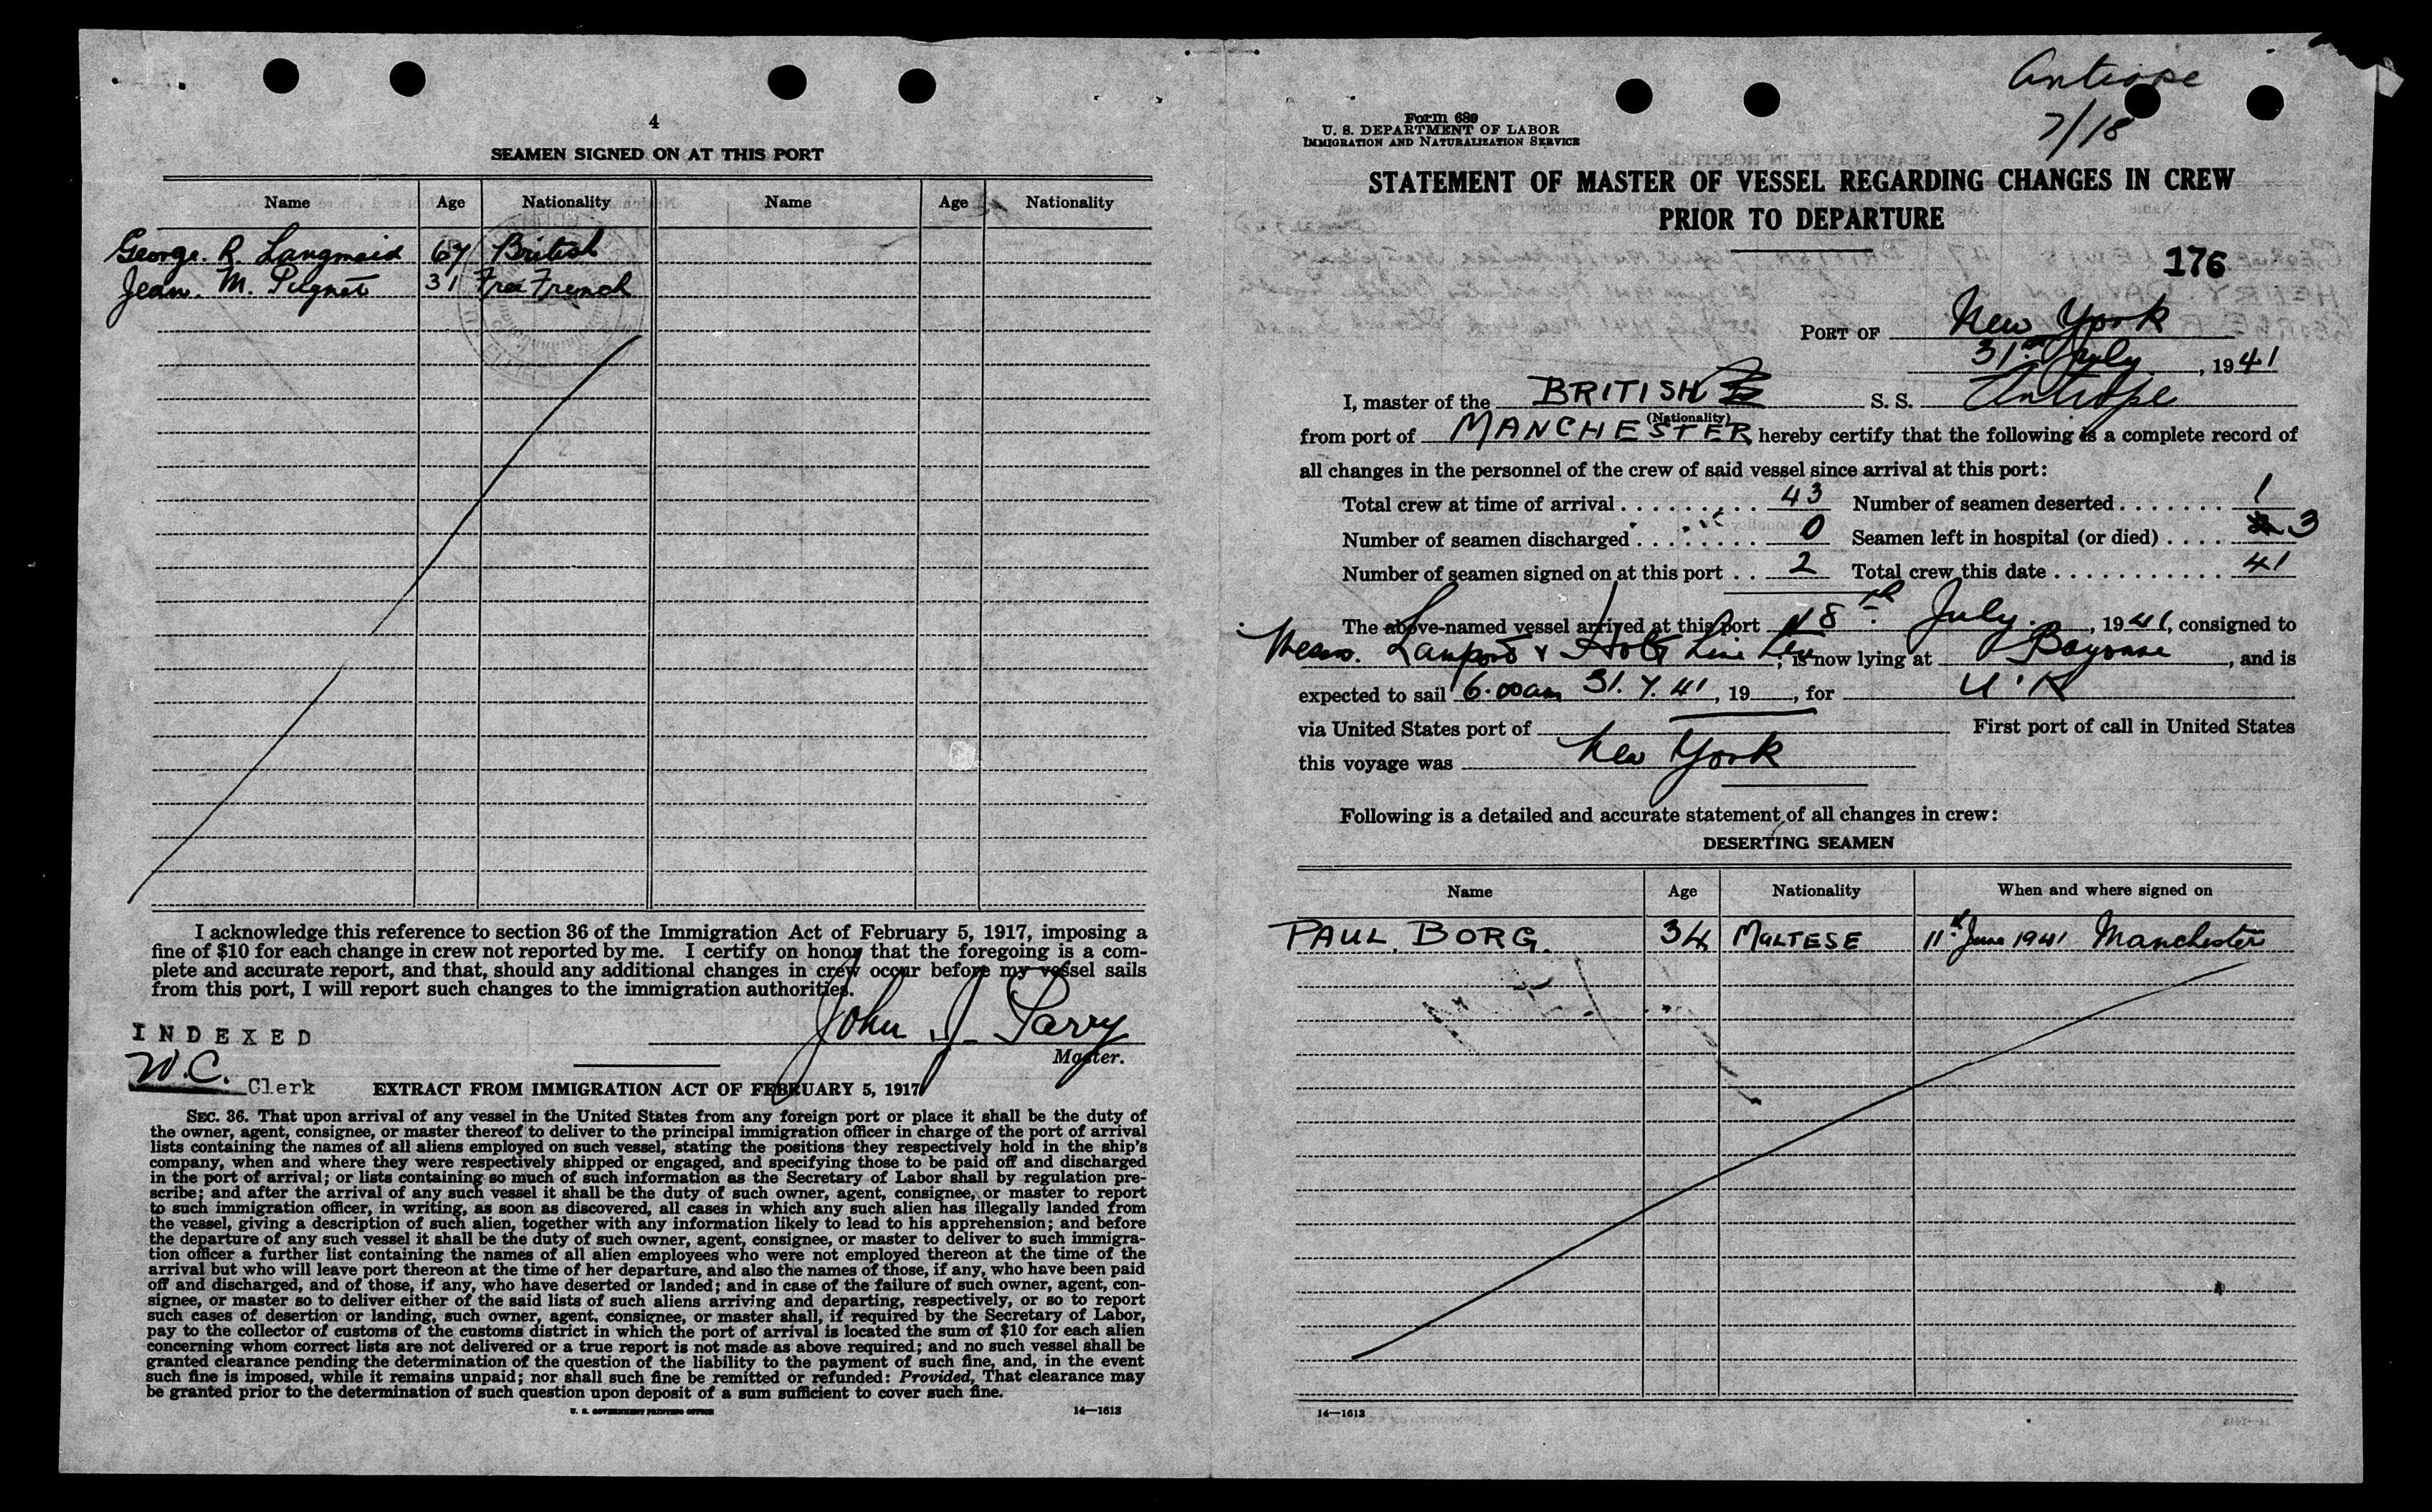 4
SEAMEN SIGNED ON AT THIS PORT
Name Age Nationality Name Age Nationality
George. R. Langmaid 67 British
Jean. M. Pugnet 31 Free French
I acknowledge this reference to section 36 of the Immigration Act of February 5, 1917, imposing a
fine of $10 for each change in crew not reported by me. I certify on honor that the foregoing is a com-
plete and accurate report, and that, should any additional changes in crew occur before my vessel sails
from this port, I will report such changes to the immigration authorities.
John J. Parry
Master.
INDEXED
W.C. Clerk
EXTRACT FROM IMMIGRATION ACT OF FEBRUARY 5, 1917
SEC. 36. That upon arrival of any vessel in the United States from any foreign port or place it shall be the duty of
the owner, agent, consignee, or master thereof to deliver to the principal immigration officer in charge of the port of arrival
lists containing the names of all aliens employed on such vessel, stating the positions they respectively hold in the ship's
company, when and where they were respectively shipped or engaged, and specifying those to be paid off and discharged
in the port of arrival; or lists containing so much of such information as the Secretary of Labor shall by regulation pre-
scribe; and after the arrival of any such vessel it shall be the duty of such owner, agent, consignee, or master to report
to such immigration officer, in writing, as soon as discovered, all cases in which any such alien has illegally landed from
the vessel, giving a description of such alien, together with any information likely to lead to his apprehension; and before
the departure of any such vessel it shall be the duty of such owner, agent, consignee, or master to deliver to such immigra-
tion officer a further list containing the names of all alien employees who were not employed thereon at the time of the
arrival but who will leave port thereon at the time of her departure, and also the names of those, if any, who have been paid
off and discharged, and of those, if any, who have deserted or landed; and in case of the failure of such owner, agent, con-
signee, or master so to deliver either of the said lists of such aliens arriving and departing, respectively, or so to report
such cases of desertion or landing, such owner, agent, consignee, or master shall, if required by the Secretary of Labor,
pay to the collector of customs of the customs district in which the port of arrival is located the sum of $10 for each alien
concerning whom correct lists are not delivered or a true report is not made as above required; and no such vessel shall be
granted clearance pending the determination of the question of the liability to the payment of such fine, and, in the event
such fine is imposed, while it remains unpaid; nor shall such fine be remitted or refunded: Provided, That clearance may
be granted prior to the determination of such question upon deposit of a sum sufficient to cover such fine.
U. S. GOVERNMENT PRINTING OFFICE 14—1613
Antiope
7/18
Form 689
U. S. DEPARTMENT OF LABOR
IMMIGRATION AND NATURALIZATION SERVICE
STATEMENT OF MASTER OF VESSEL REGARDING CHANGES IN CREW
PRIOR TO DEPARTURE
176
PORT OF New York
31st July, 1941
I, master of the BRITISH S. S. Antiope
(Nationality)
from port of MANCHESTER hereby certify that the following is a complete record of
all changes in the personnel of the crew of said vessel since arrival at this port:
Total crew at time of arrival . . . . . . . . . 43 Number of seamen deserted . . . . . . . 1
Number of seamen discharged . . . . . . . . 0 Seamen left in hospital (or died) . . . . 3
Number of seamen signed on at this port . . 2 Total crew this date . . . . . . . . . . . 41
The above-named vessel arrived at this port 18th July., 1941, consigned to
Messrs. Lamport & Holt Line Ltd, is now lying at Bayonne, and is
expected to sail 6.00am 31. 7. 41, 19 , for U.K
via United States port of First port of call in United States
this voyage was New York
Following is a detailed and accurate statement of all changes in crew:
DESERTING SEAMEN
Name Age Nationality When and where signed on
PAUL. BORG. 34 MALTESE 11th June 1941 Manchester
14—1613